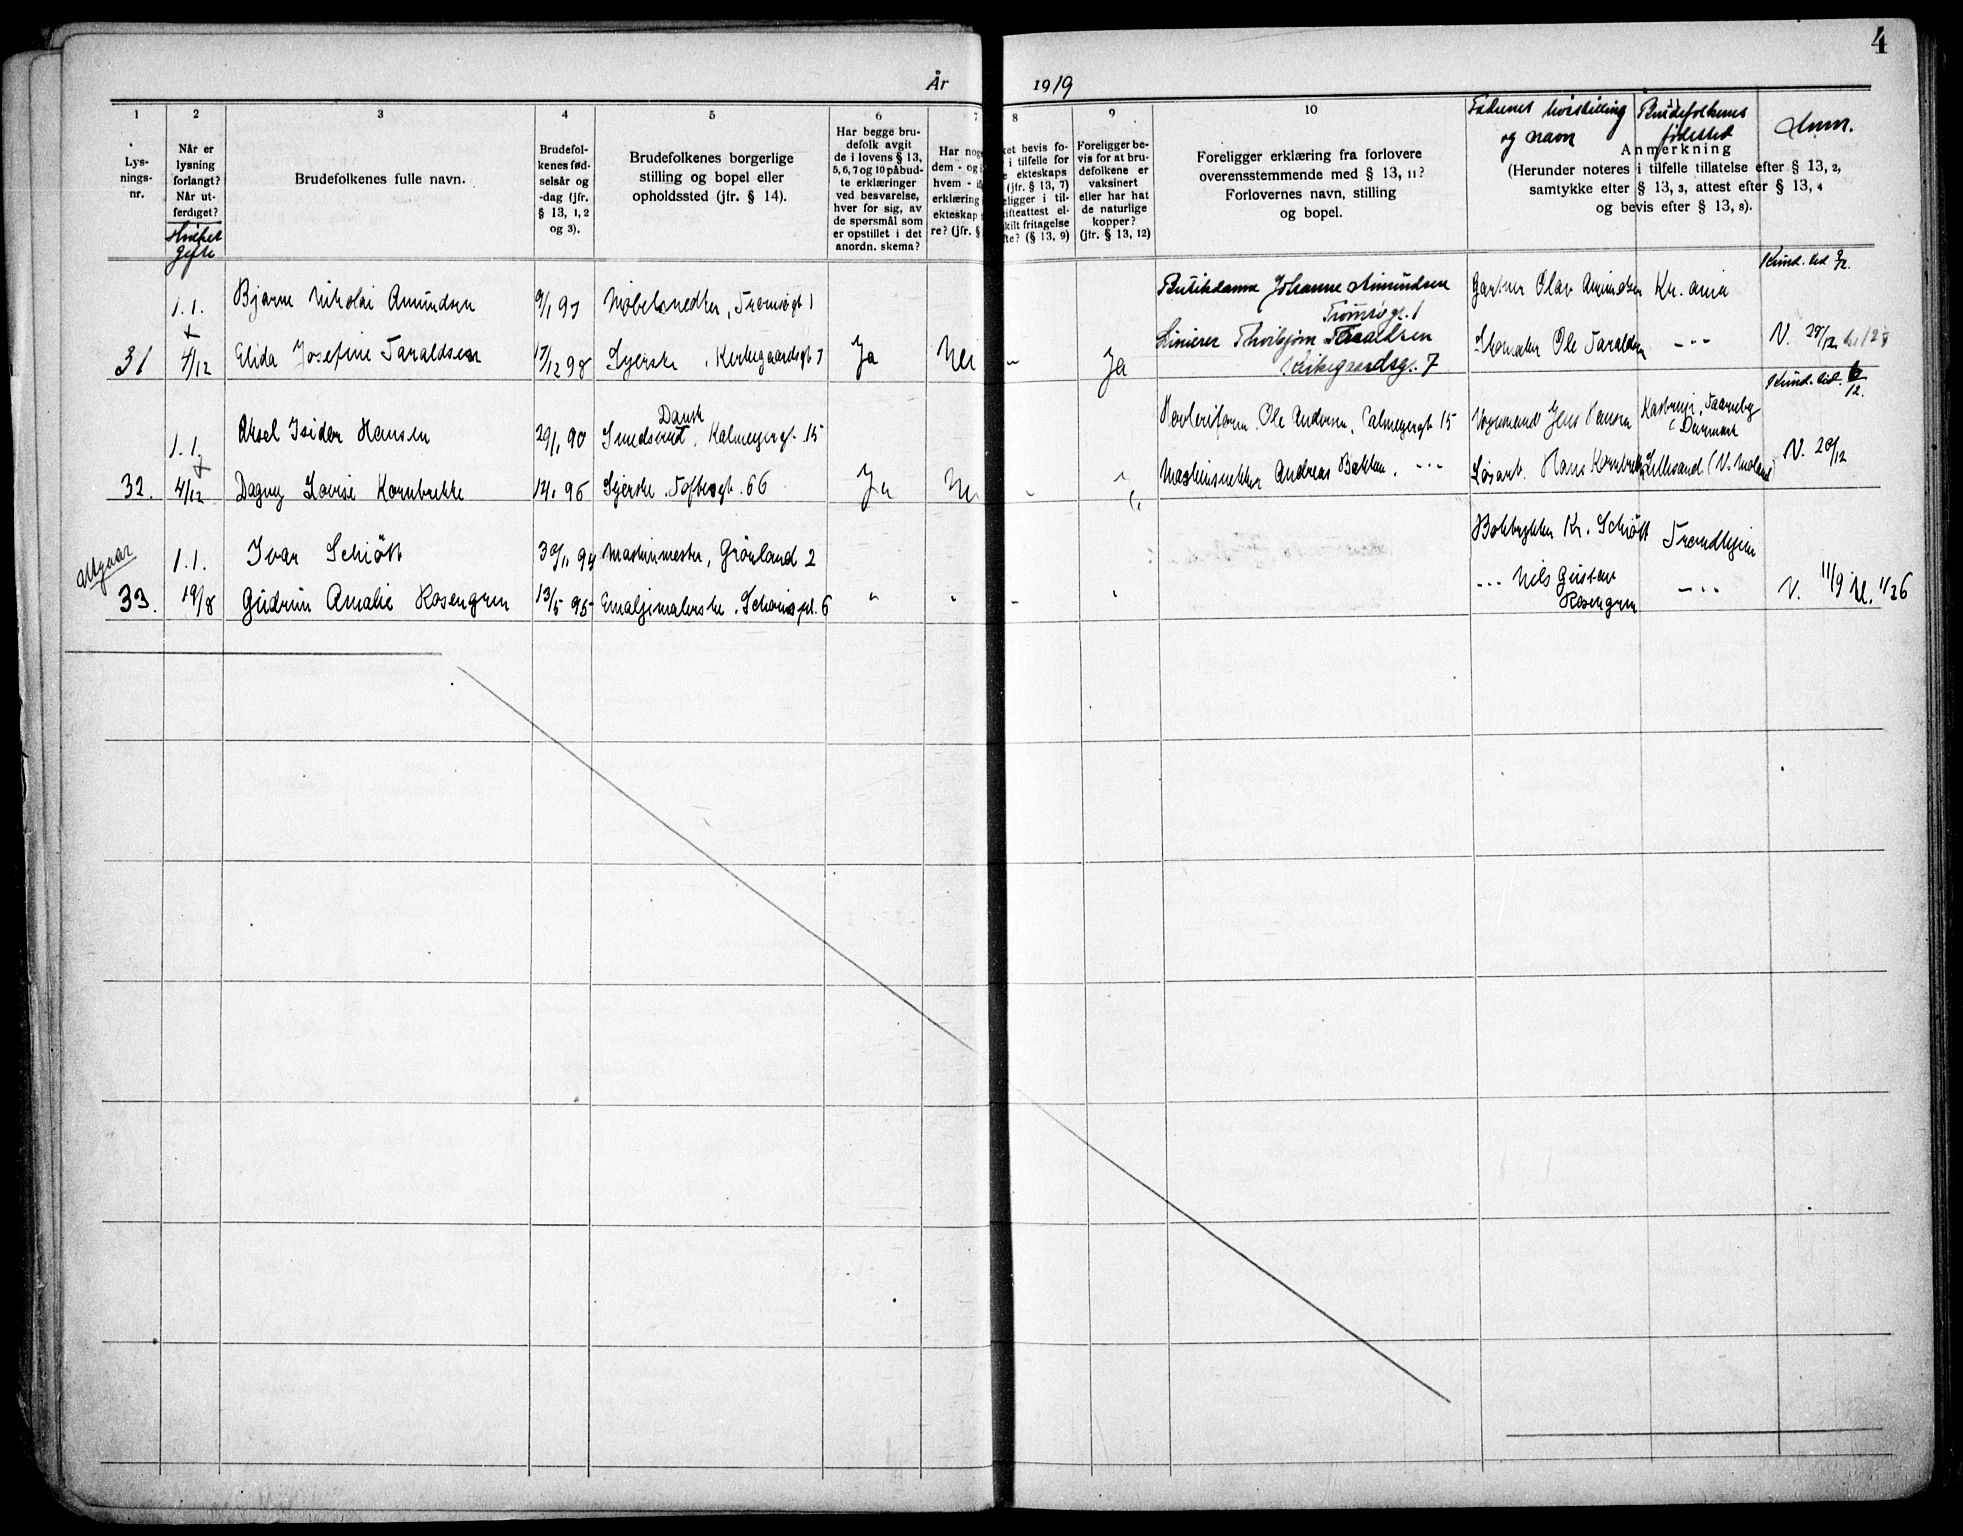 4
År 1919
1
Lys-
nings-
nr.
2
Når er
lysning
forlangt?
Når ut-
ferdiget?
gifte
3
Brudefolkenes fulle navn.
4
Brudefol-
kenes fød-
selsår og
-dag (jfr.
§ 13, 1, 2
og 3).
5
Brudefolkenes borgerlige
stilling og bopel eller
opholdssted (jfr. § 14).
6
Har begge bru-
defolk avgit
de i lovens § 13,
5, 6, 7 og 10 påbud-
te erklæringer
ved besvarelse,
hver for sig, av
de spørsmål som
er opstillet i det
anordn. skema?
7
Har nog
dem - og
hvem - i
erklæring
ekteskap
re? (jfr. §
8
ket bevis fo-
i tilfelle for
e ekteskaps
(jfr. § 13, 7)
eligger i til-
kifteattest el-
kilt fritagelse
fte? (§ 13, 9)
9
Foreligger be-
vis for at bru-
defolkene er
vaksinert
eller har hat
de naturlige
kopper?
(jfr. § 13, 12)
10
Foreligger erklæring fra forlovere
overensstemmende med § 13, 11?
Forlovernes navn, stilling
og bopel.
og navn
Brudefolkenes
fødested
Anm.
Anmerkning
(Herunder noteres i tilfelle tillatelse efter § 13, 2,
samtykke efter § 13, 3, attest efter § 13, 4
og bevis efter § 13, 8).
1.1. Bjarne Nikolai Amundsen 9/1 97 Møbelsnedker, Tromsøgt 1 Butikdame Johanne Amundsen Gartner Olav Amundsen Kr.ania
Tromsøgt. 1
31 4/12 Elida Josefine Taraldsen 17/12 98 Syerske, Kirkegaardsgt 7 Ja Nei - Ja Linierer Thorbjørn Taraldsen Skomaker Ole Taraldsen -"- V. 29/12
Kirkegaardsg. 7
1.1. Aksel Isidor Hansen 29/1 90 Dansk
Smedsvend, Kalmeyergt. 15 Ole Andersen, Calmeyergt 15 Vognmand Jens Hansen Kastrup, Taarnby
Danmark
32. 4/12 Dagny Lovise Kornbrekke Syerske, Toftesgt. 66 Ja Nei - " Maskinsnekker Andreas Bakken, -"- Løsarb. Hans Kornbrekke Lillesand V. 20/12
Utgaar
1.1. Ivar Schiött 30/11 94 Maskinmester, Grönland 2 Boktrykker Kr. Schiött Trondhjem
33. 19/8 Gudrun Amalie Rosengren 13/5 95 Emaljemalerske, Schous pl. 6 " " - " -"- Nils Gustav
Rosengren -"- V. 11/9 Kl. 1/26